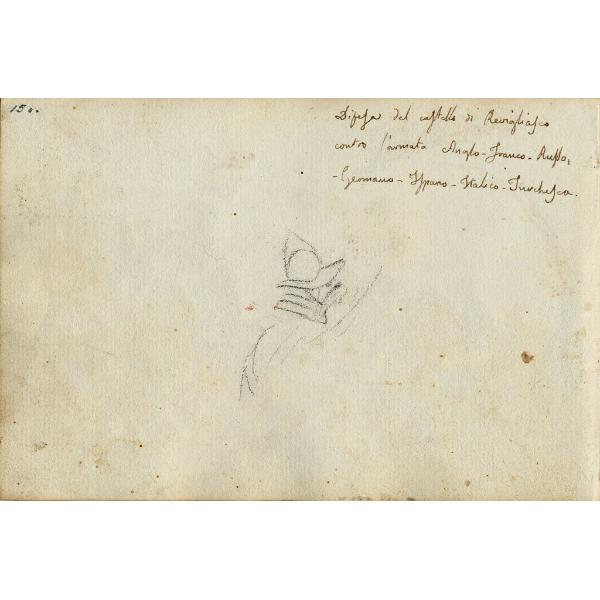 150.
Difesa del castello di Revigliasco
contro l'armata Anglo-Franco-Russo,
-Germano-Ispano-Italico-Turchesca.